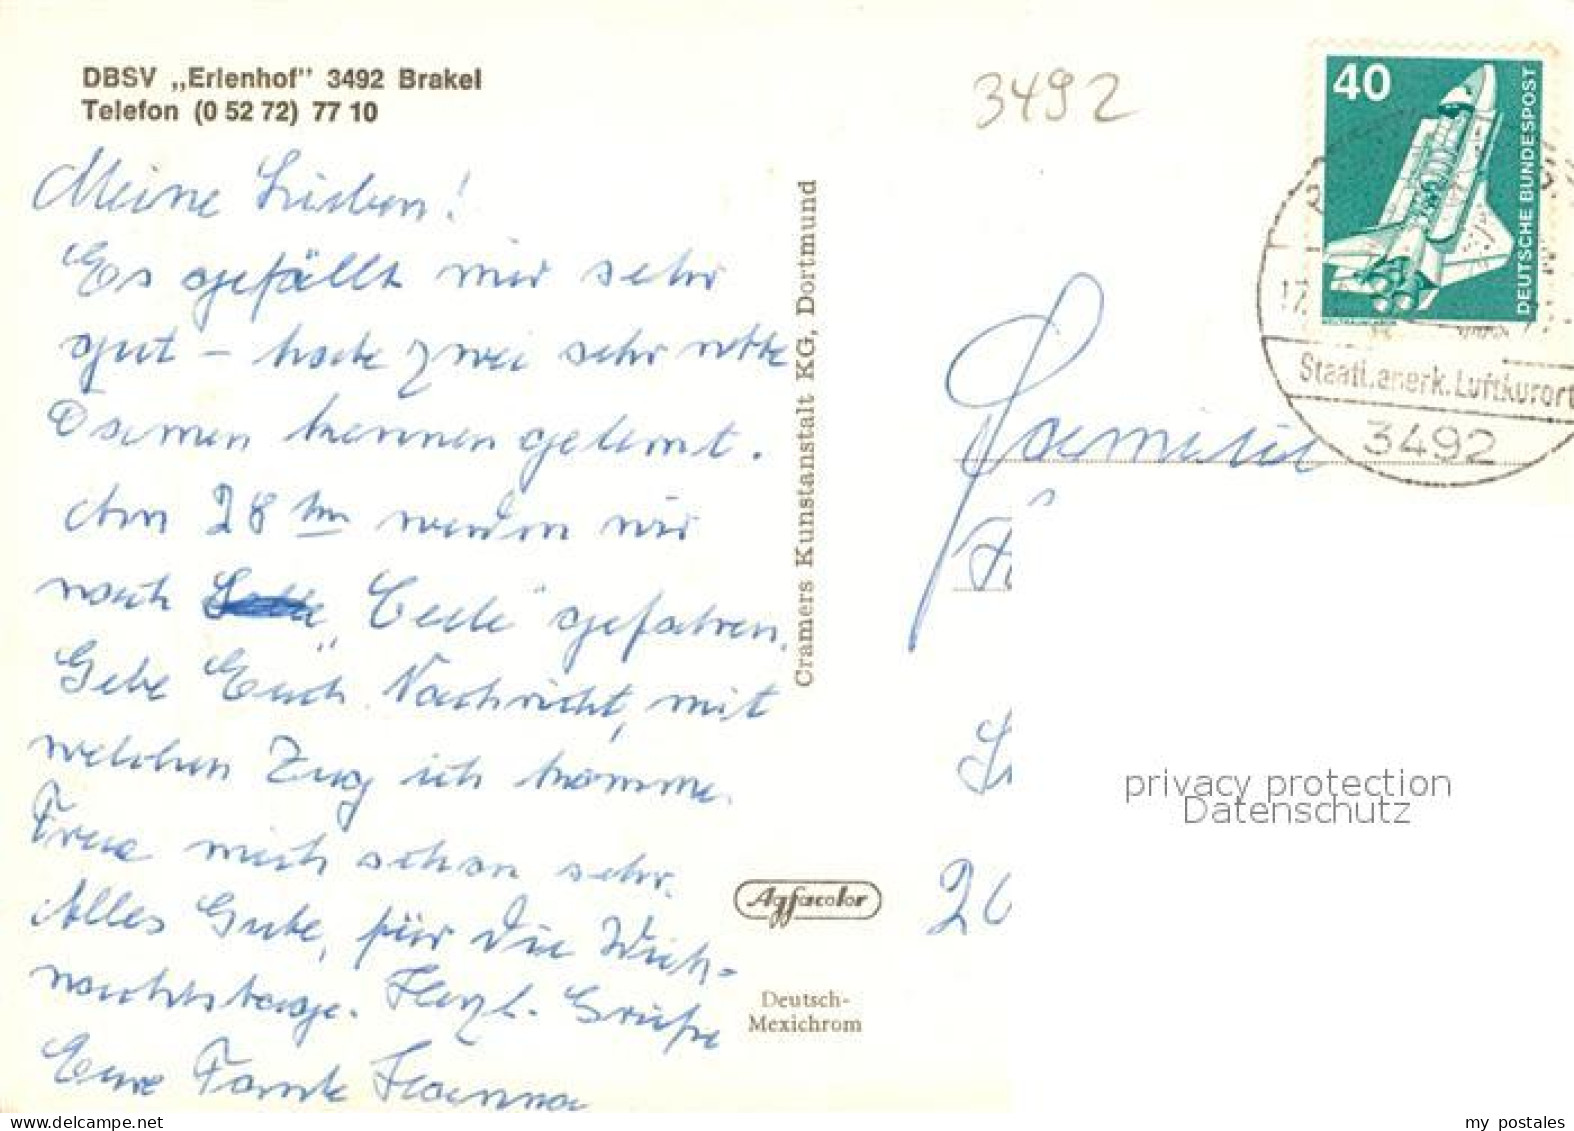 DBSV „Erlenhof" 3492 Brakel
Telefon (0 52 72) 77 10
Meine Lieben!
Es gefällt mir sehr
gut – habe zwei sehr nette
Damen kennen gelernt.
Am 28 werden wir
nach „Celle" gefahren.
Gebe Euch Nachricht, mit
welchen Zug ich komme.
Freue mich schon sehr.
Alles Gute, für die Weih-
nachtstage. Herzl. Grüße
Eure Tante Hanna
Cramers Kunstanstalt KG, Dortmund
Agfacolor
Deutsch-
Mexichrom
3492
40
DEUTSCHE BUNDESPOST
17.
Staatl. anerk. Luftkurort
3492
Familie
privacy protection
Datenschutz
my postales
www.delcampe.net